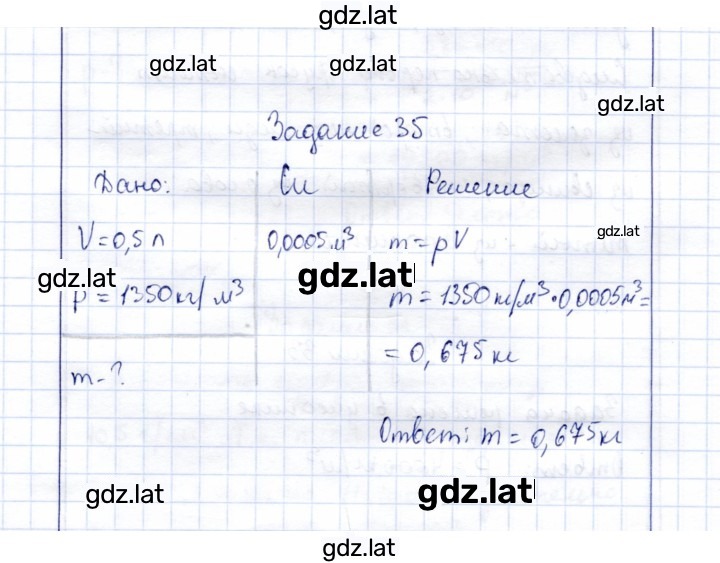 gdz.lat
gdz.lat gdz.lat
gdz.lat
Задание 35
Дано: Си Решение
V = 0,5 л 0,0005 м³ m = ρV
gdz.lat
gdz.lat gdz.lat
ρ = 1350 кг/м³ m = 1350 кг/м³ • 0,0005 м³ =
= 0,675 кг
m - ?
Ответ: m = 0,675 кг
gdz.lat gdz.lat
gdz.lat